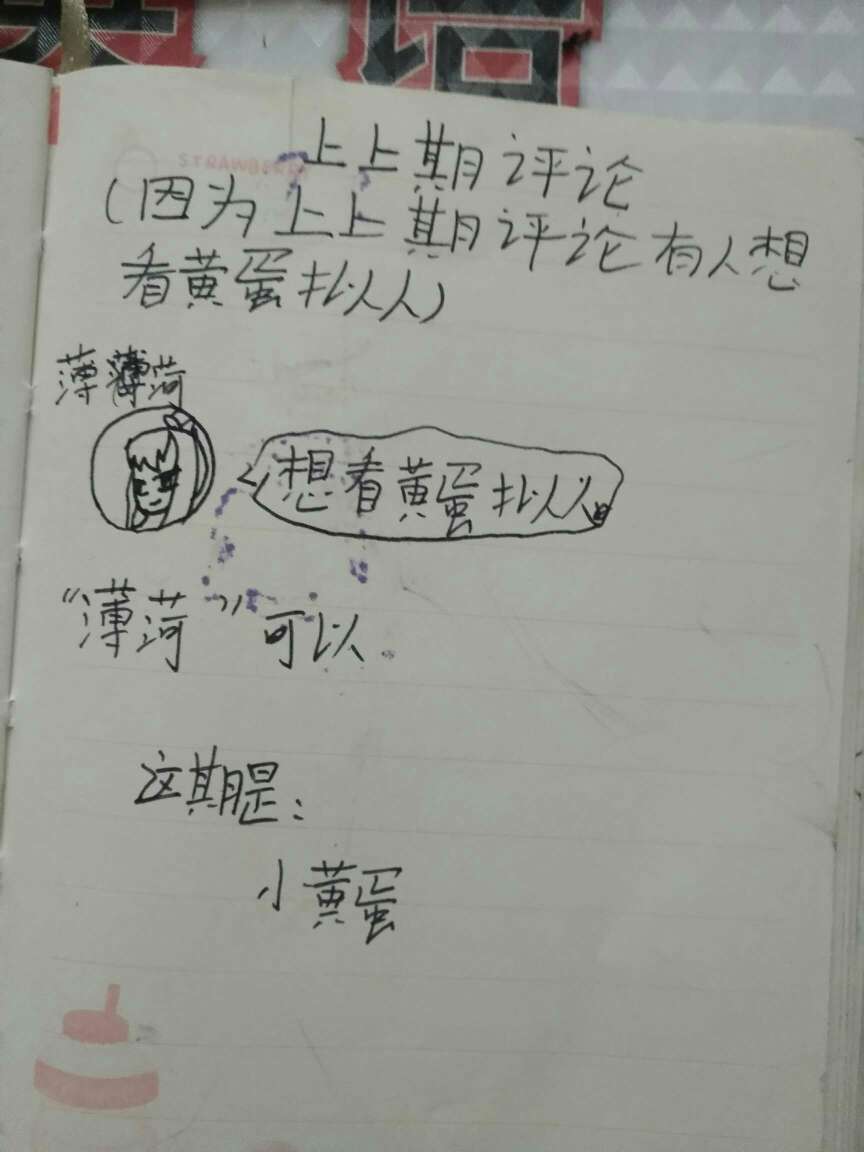 英语
STRAWBERR
上上期评论
(因为上上期评论有人想
看黄蛋拟人)
薄荷
想看黄蛋拟人
“薄荷”可以.
这期是:
小黄蛋